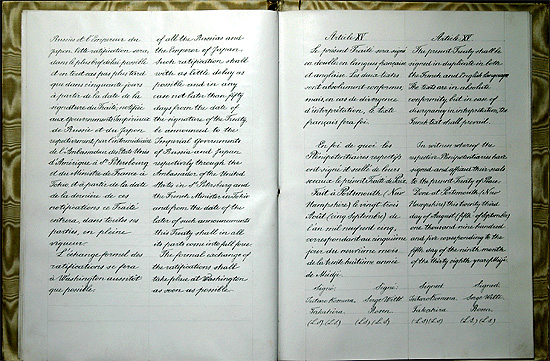 Russie et l'Empereur du
Japon. Cette ratification sera,
dans le plus bref délai possible
et en tout cas pas plus tard
que dans cinquante jours
à partir de la date de la
signature du Traité, notifiée
aux Gouvernements Impériaux
de Russie et du Japon
respectivement par l'intermédiaire
de l'Ambassadeur des Etats Unis
d'Amérique à St. Pétersbourg
et du Ministre de France à
Tokio et à partir de la date
de la dernière de ces
notifications ce Traité
entrera, dans toutes ses
parties, en pleine
vigueur.
L'échange formel des
ratifications se fera
à Washington aussitôt
que possible.
of all the Russias and
the Emperor of Japan.
Such ratification shall
with as little delay as
possible and in any
case not later than fifty
days from the date of
the signature of the Treaty
be announced to the
Imperial Governments
of Russia and Japan
respectively through the
Ambassador of the United
States in St. Petersburg and
the French Minister in Tokio
and from the date of the
later of such announcements
this Treaty shall in all
its parts come into full force.
The formal exchange of
the ratifications shall
take place at Washington
as soon as possible.
Article XV
Le présent Traité sera signé
en double en langues française
et anglaise. Les deux textes
sont absolument conformes;
mais, en cas de divergence
d'interprétation, le texte
français fera foi.
En foi de quoi les
Plénipotentiaires respectifs
ont signé et scellé de leurs
sceaux le présent Traité de Paix.
Fait à Portsmouth, (New
Hampshire) le vingt trois
Août (cinq Septembre) de
l'an mil neuf cent cinq,
correspondant au cinquième
jour du neuvième mois
de la trente huitième année
de Meidji.
Signé: Signé:
Jutaro Komura. Serge Witte.
K. Takahira. Rosen.
(L.S.) (L.S.) (L.S.) (L.S.)
Article XV.
The present Treaty shall be
signed in duplicate in both
the French and English languages.
The texts are in absolute
conformity, but in case of
discrepancy in interpretation, the
French text shall prevail.
In witness whereof the
respective Plenipotentiaries have
signed and affixed their seals
to the present Treaty of Peace.
Done at Portsmouth (New
Hampshire) this twenty third
day of August (fifth of September)
one thousand nine hundred
and five corresponding to the
fifth day of the ninth month
of the thirty eighth year of Meiji.
Signed: Signed:
Jutaro Komura. Serge Witte.
K. Takahira. Rosen.
(L.S.) (L.S.) (L.S.) (L.S.)